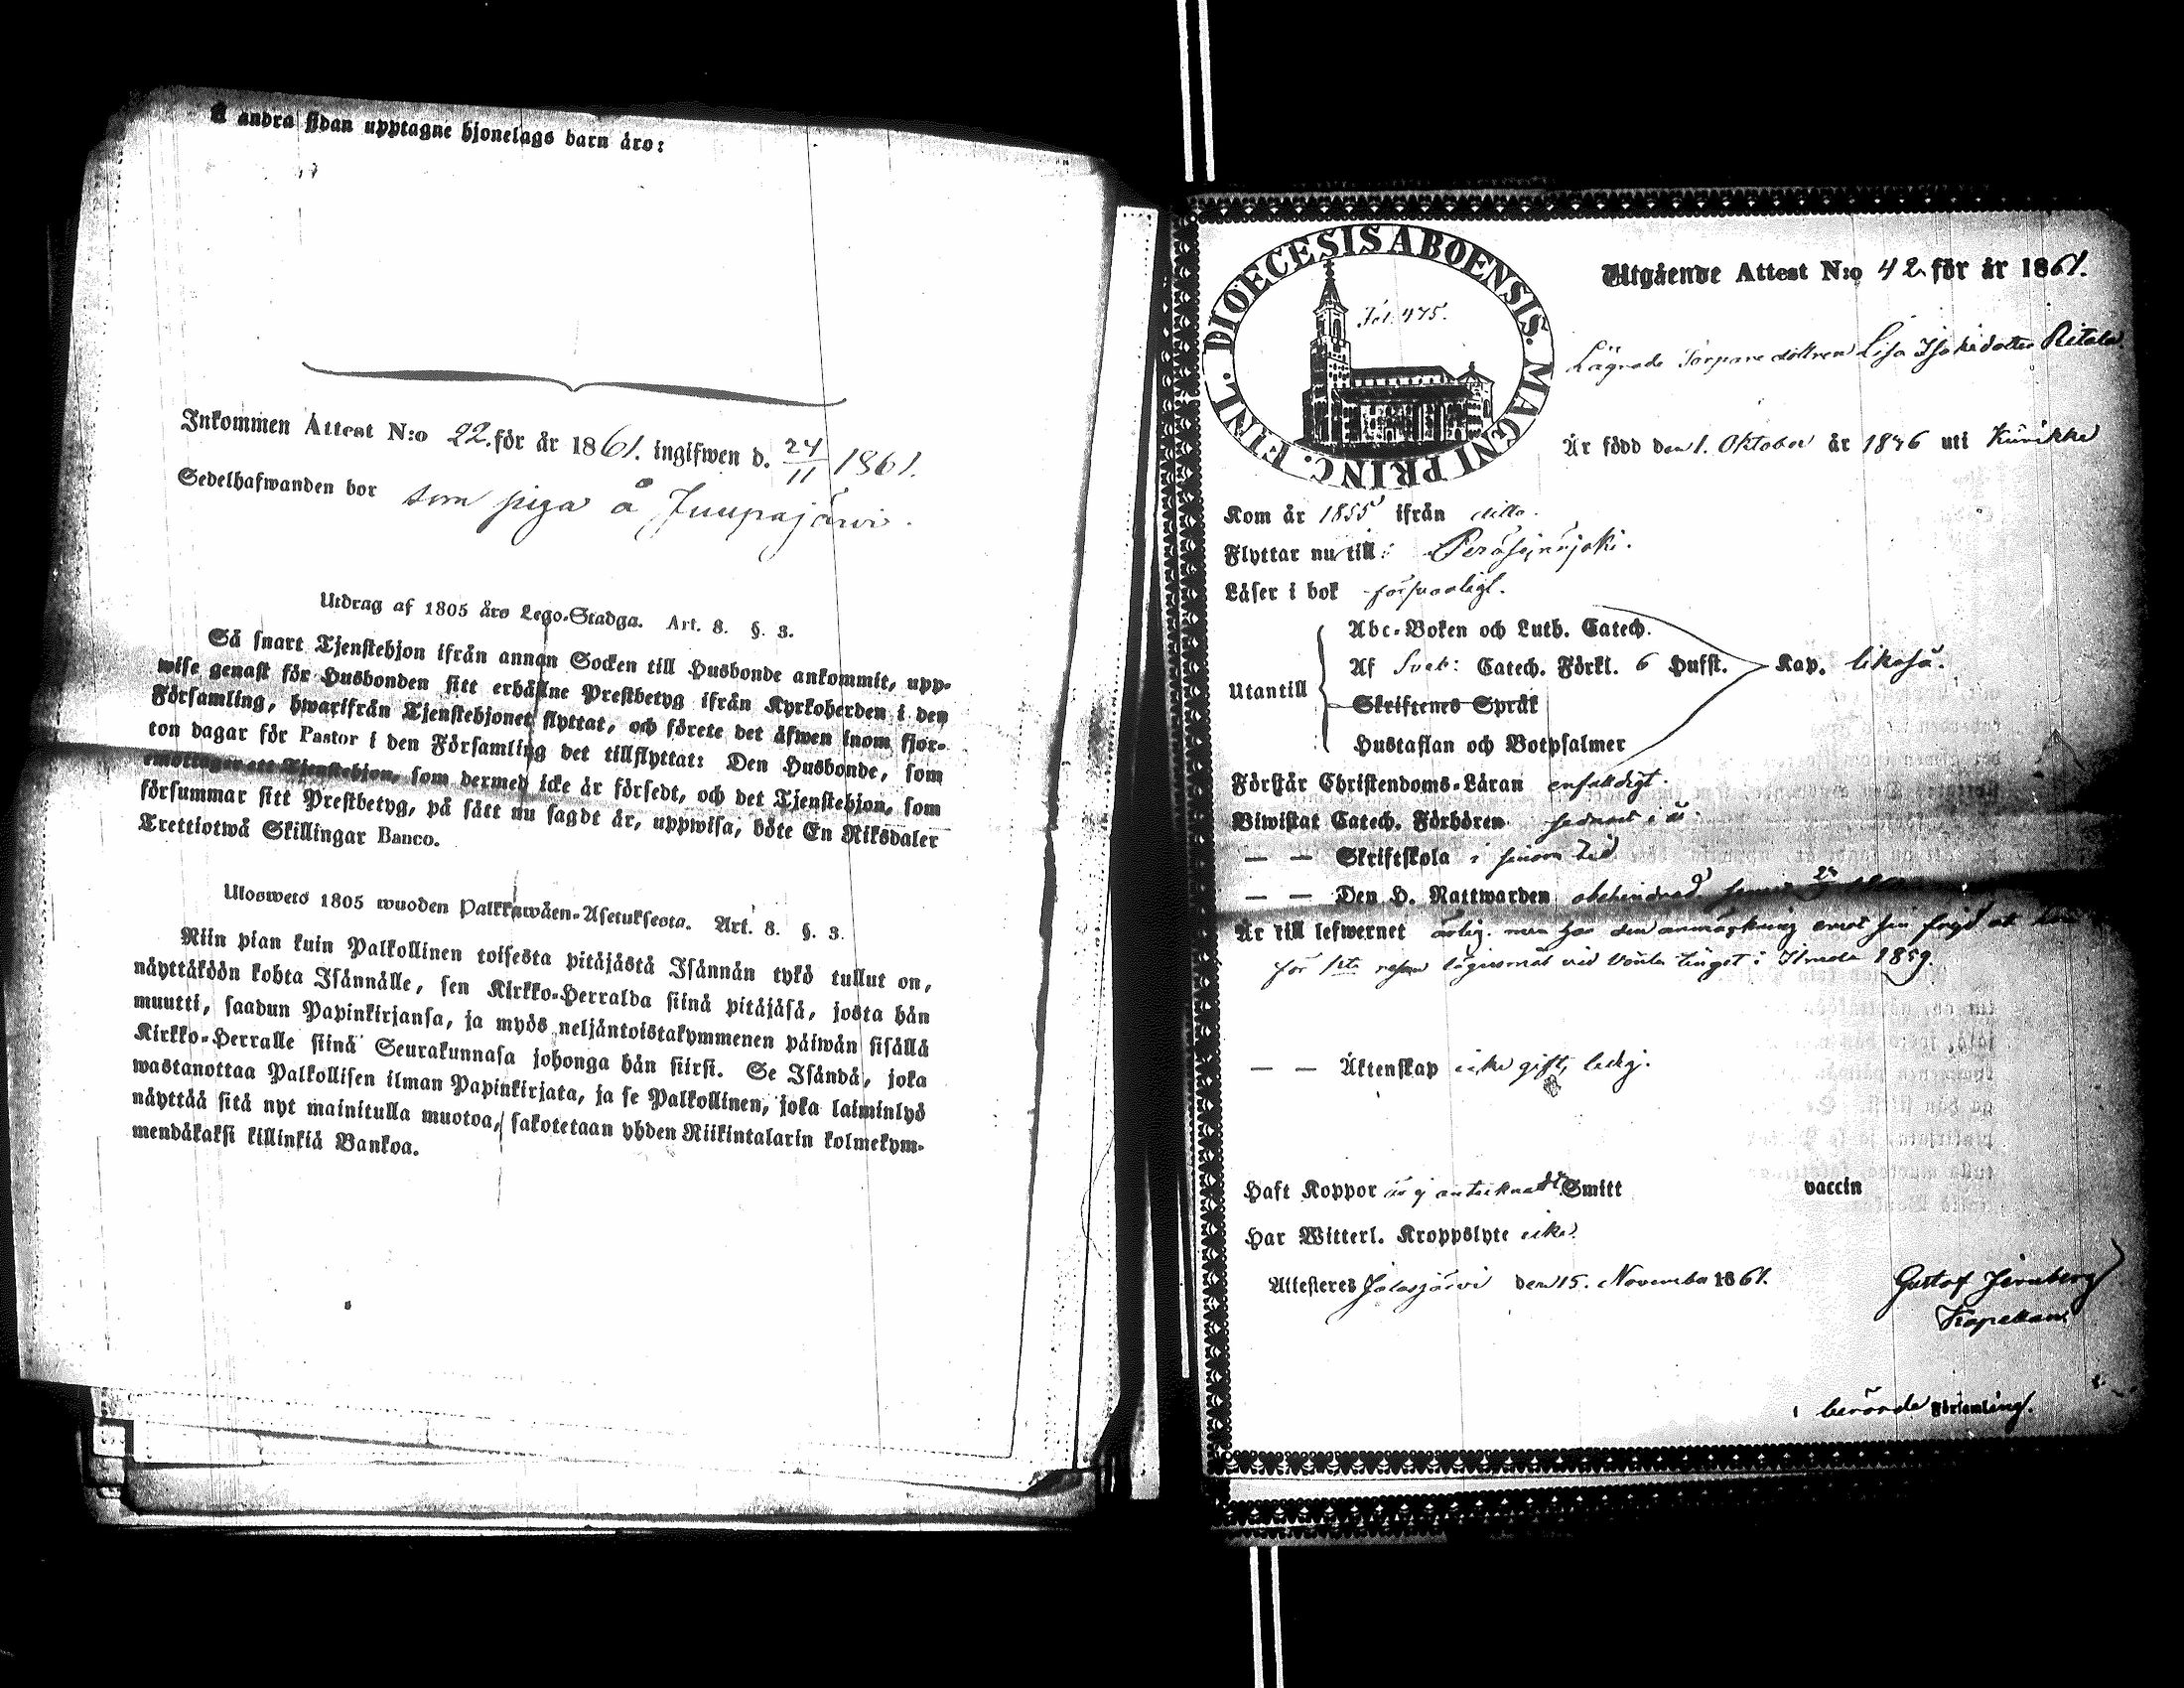 Å andra sidan upptagne hjonelags barn äro:
Inkommen Attest N:o 22. för år 1861. ingifwen d. 24/11 1861.
Sedelhafwanden bor som piga å Juupajärvi.
Utdrag af 1805 års Lego-Stadga. Art. 8. §. 3.
Så snart Tjenstehjon ifrån annan Socken till Husbonde ankommit, upp-
wise genast för Husbonden sitt erhållne Prestbetyg ifrån Kyrkoherden i den
Församling, hwarifrån Tjenstehjonet flyttat, och förete det äfwen inom fjor-
ton dagar för Pastor i den Församling det tillflyttat: Den Husbonde, som
emottager ett Tjenstehjon, som dermed icke är försedt, och det Tjenstehjon, som
försummar sitt Prestbetyg, på sätt nu sagdt är, uppwisa, böte En Riksdaler
Trettiotwå Skillingar Banco.
Uloswets 1805 wuoden Palkkawäen-Asetuksesta. Art. 8. §. 3.
Niin pian kuin Palkollinen toisesta pitäjästä Isännän tykö tullut on,
näyttäköön kohta Isännälle, sen Kirkko-Herralda siinä pitäjäsä, josta hän
muutti, saadun Papinkirjansa, ja myös neljäntoistakymmenen päiwän sisällä
Kirkko-Herralle siinä Seurakunnasa johonga hän siirsi. Se Isändä, joka
wastanottaa Palkollisen ilman Papinkirjata, ja se Palkollinen, joka laiminlyö
näyttää sitä nyt mainitulla muotoa, sakotetaan yhden Riikintalarin kolmekym-
mendäkaksi killinkiä Bankoa.
DIOECESIS ABOENSIS. MAGNI PRINC. FINL.
Fol. 475.
Utgående Attest N:o 42 för år 1861.
Lägrade Torpare dottren Lisa Isaksdotter Ritala
Är född den 1. Oktober år 1836 uti Kurikka
Kom år 1855 ifrån ditto.
Flyttar nu till: Peräseinäjoki.
Läser i bok försvarligt.
Abc-Boken och Luth. Catech.
Utantill Af Sveb: Catech. Förkl. 6 Hufst. Kap. likaså.
Skriftenes Språk
Hustaflan och Botpsalmer
Förstår Christendoms-Läran enfaldigt.
Biwistat Catech. Förhören sednast i år.
— — Skriftskola i sinom tid
— — Den H. Nattwarden obehindrad
Är till lefwernet ärlig. men har den anmärkning emot sin frejd at
för 1sta resan lägersmål vid Vinter tinget i Ilmola 1859.
— — Äktenskap icke gift, ledig.
Haft Koppor är ej antecknadt Smitt vaccin
Har Witterl. Kroppslyte icke.
Attesteres Jalasjärvi den 15. November 1861.
Gustaf
Kapellan
i berörde Församling.